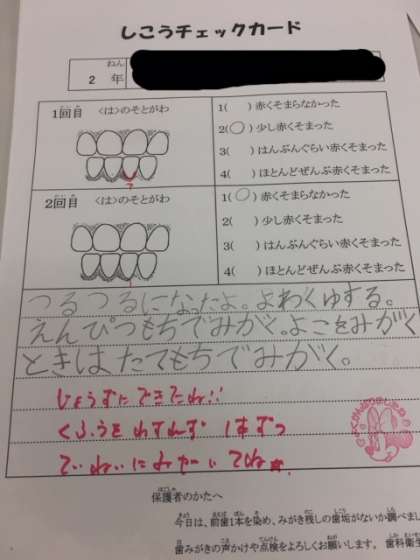 しこうチェックカード
2年
1回目 〈は〉のそとがわ
1( )赤くそまらなかった
2(○)少し赤くそまった
3( )はんぶんぐらい赤くそまった
4( )ほとんどぜんぶ赤くそまった
2回目 〈は〉のそとがわ
1(○)赤くそまらなかった
2( )少し赤くそまった
3( )はんぶんぐらい赤くそまった
4( )ほとんどぜんぶ赤くそまった
つるつるになったよ。よわくゅする。
えんぴつもちでみがく。よこをみがく
ときはたてもちでみがく。
じょうずにできてね!!
くふうをわすれず 1本ずつ
ていねいにみがいてね
保護者のかたへ
今日は、前歯1本を染め、みがき残しの歯垢がないか調べまし
歯みがきの声かけや点検をよろしくお願いします。 歯科衛生